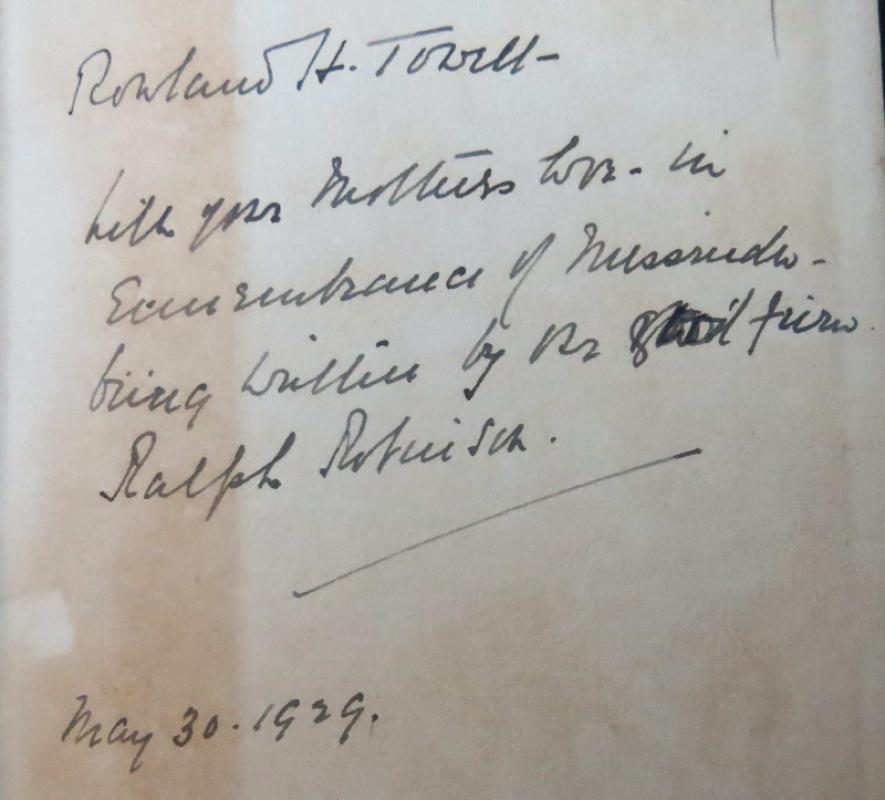 Rowland H. Towell -
with your Mothers love - in
remembrance of
being written by our friend
Ralph Robinson.
May 30. 1929.